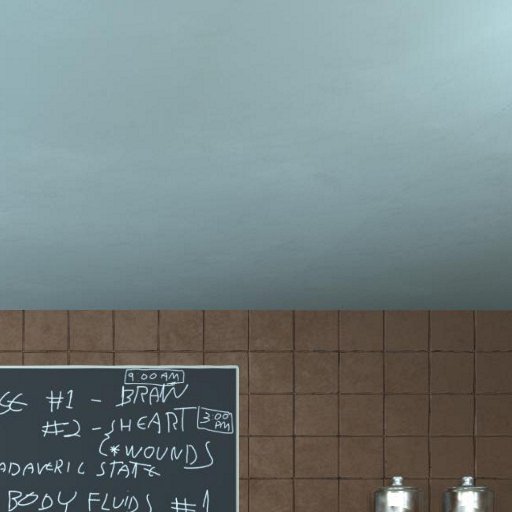 9:00 AM
#1 - BRAIN
#2 - HEART 3:00 PM
* WOUNDS
ADAVERIC STATE
BODY FLUIDS #1